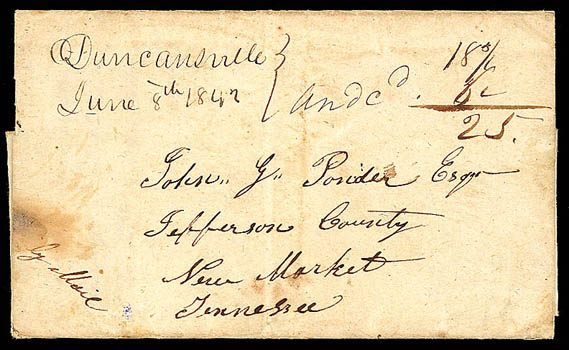 Duncansville
June 8th 1842
and cd.
18 3/4
6 1/4
25.
John" G" Ponder Esqr
Jefferson County
New Market
Tennessee
by Mail